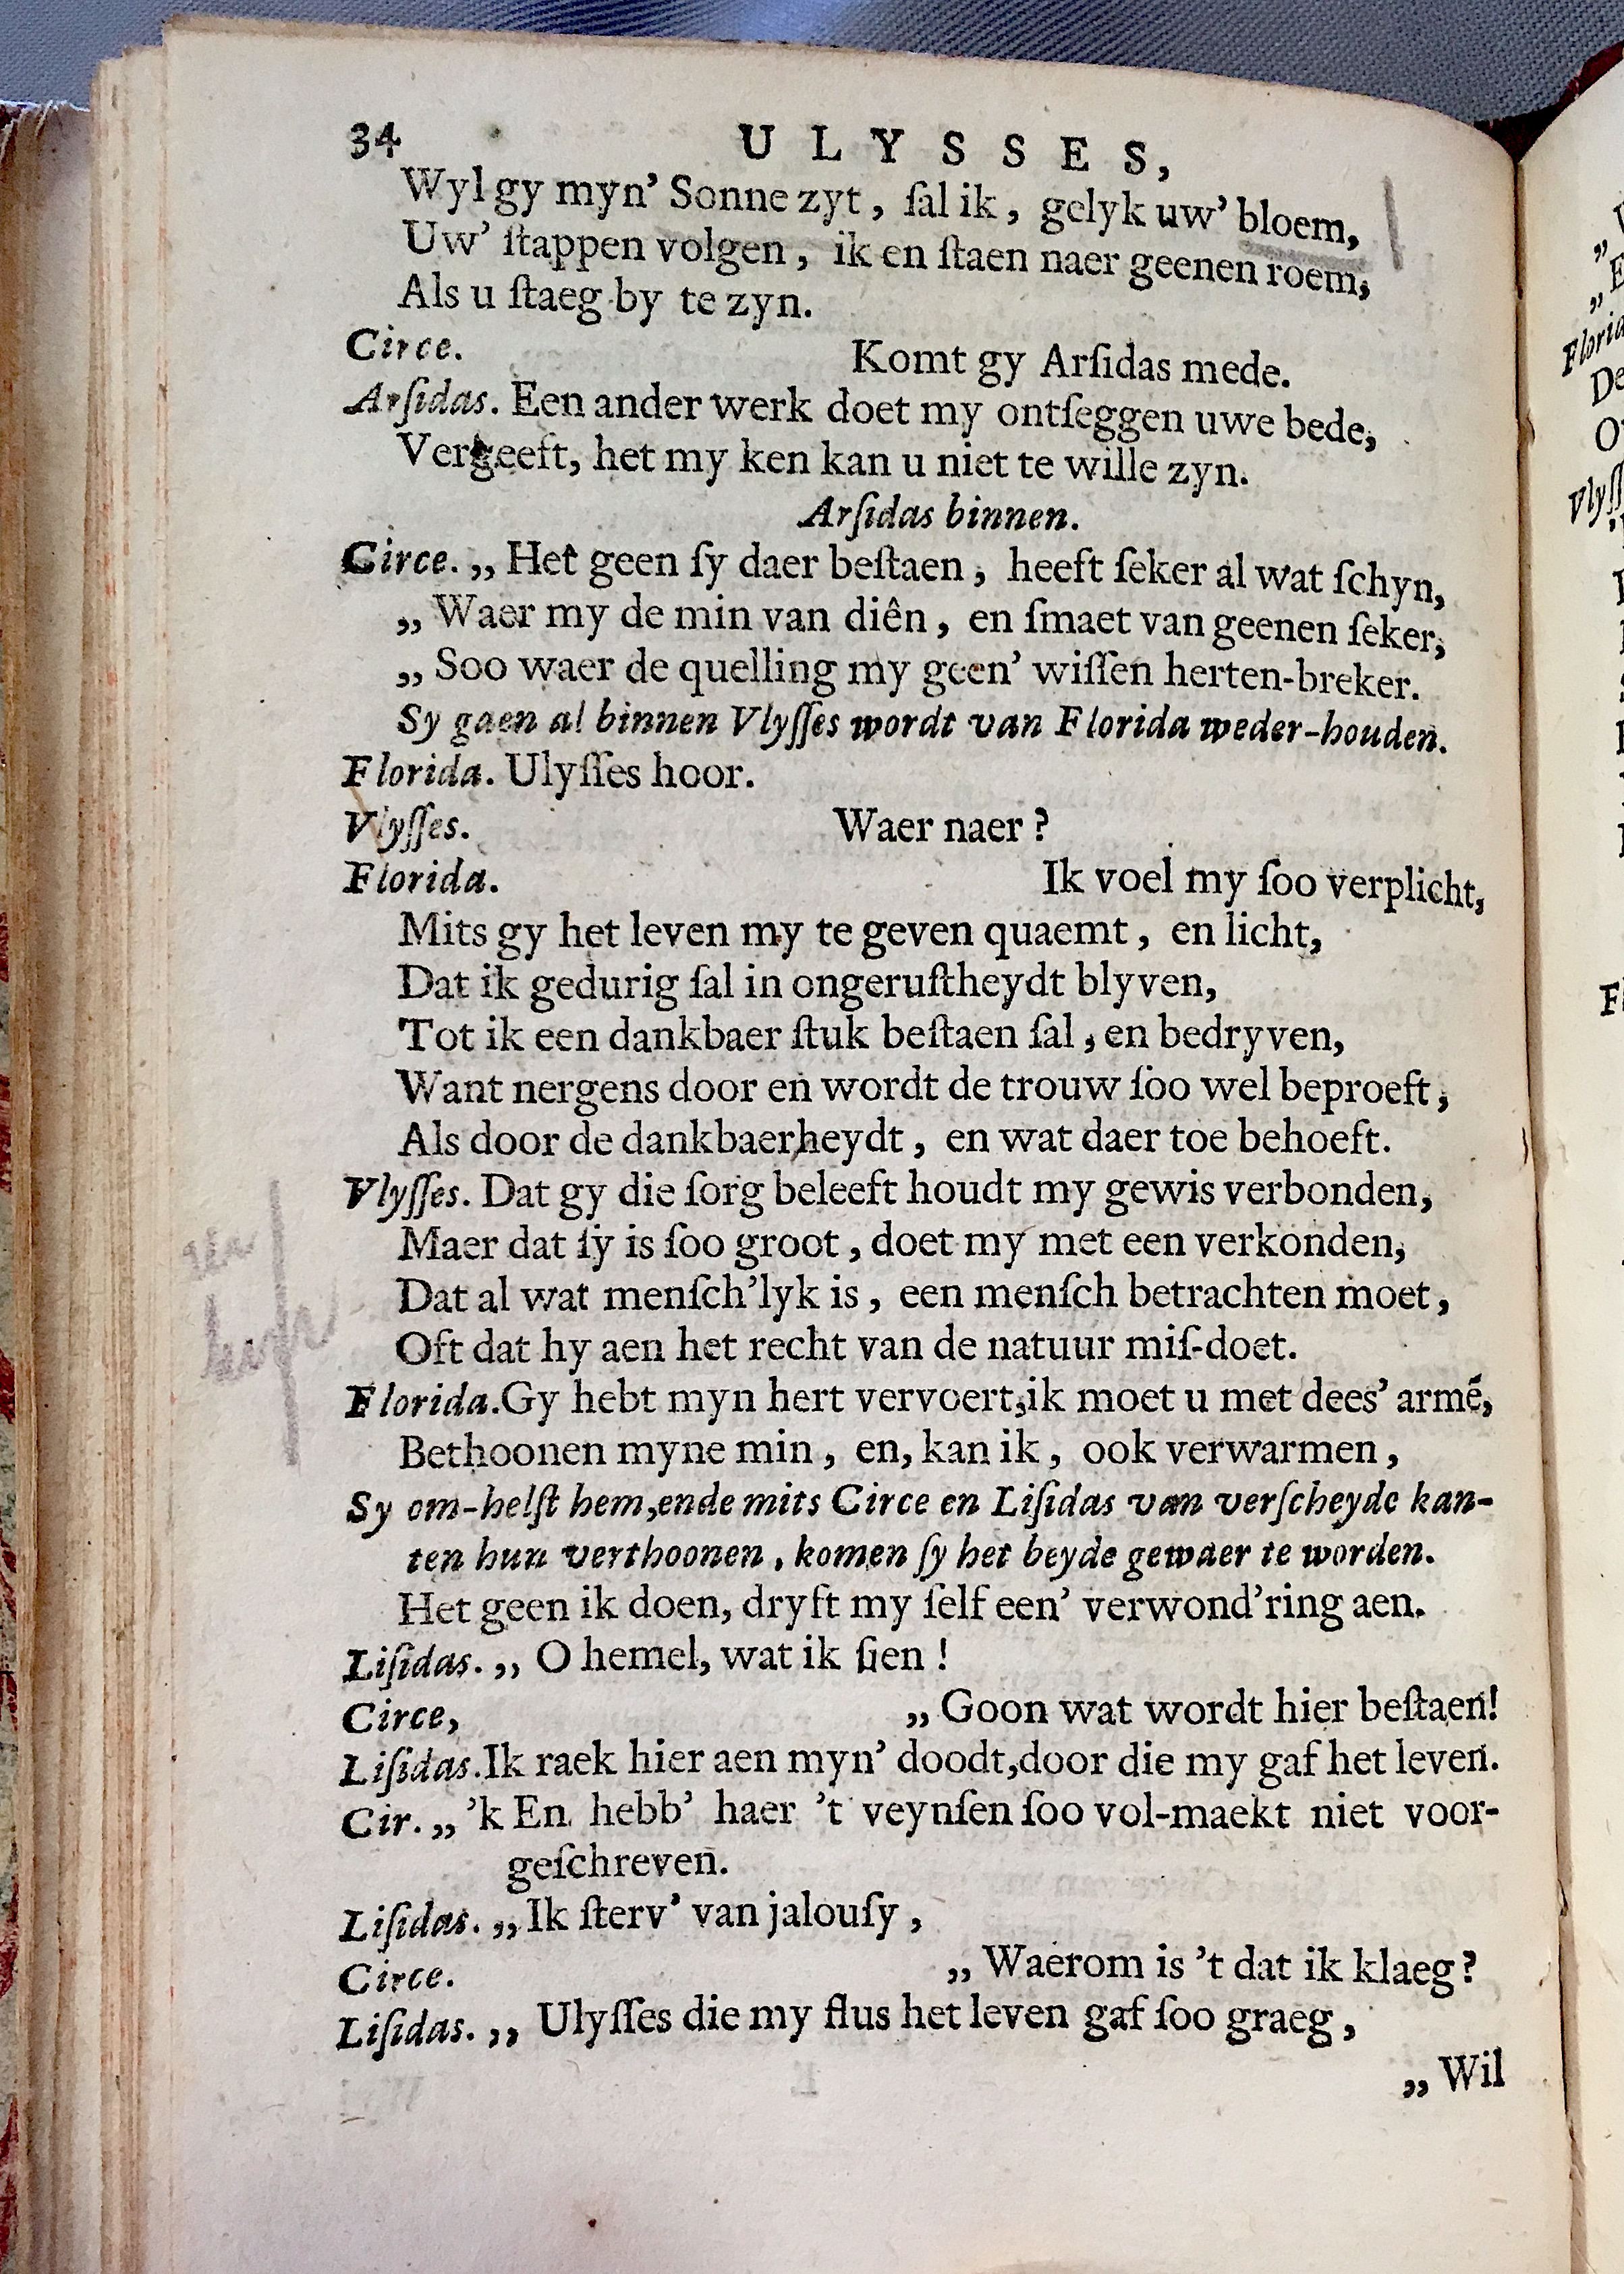 34 ULYSSES,
Wyl gy myn’ Sonne zyt, ſal ik, gelyk uw’ bloem,
Uw’ ſtappen volgen, ik en ſtaen naer geenen roem,
Als u ſtaeg by te zyn.
Circe. Komt gy Arſidas mede.
Arſidas. Een ander werk doet my ontſeggen uwe bede,
Vergeeft, het my ken kan u niet te wille zyn.
Arſidas binnen.
Circe. „ Het geen ſy daer beſtaen, heeft ſeker al wat ſchyn,
„ Waer my de min van diên, en ſmaet van geenen ſeker,
„ Soo waer de quelling my geen’ wiſſen herten-breker.
Sy gaen al binnen Vlyſſes wordt van Florida weder-houden.
Florida. Ulyſſes hoor.
Vlyſſes. Waer naer?
Florida. Ik voel my ſoo verplicht,
Mits gy het leven my te geven quaemt, en licht,
Dat ik gedurig ſal in ongeruſtheydt blyven,
Tot ik een dankbaer ſtuk beſtaen ſal, en bedryven,
Want nergens door en wordt de trouw ſoo wel beproeft,
Als door de dankbaerheydt, en wat daer toe behoeft.
Vlyſſes. Dat gy die ſorg beleeft houdt my gewis verbonden,
Maer dat ſy is ſoo groot, doet my met een verkonden,
Dat al wat menſch’lyk is, een menſch betrachten moet,
Oft dat hy aen het recht van de natuur miſ-doet.
Florida. Gy hebt myn hert vervoert, ik moet u met dees’ armē,
Bethoonen myne min, en, kan ik, ook verwarmen,
Sy om-helſt hem, ende mits Circe en Liſidas van verſcheyde kan-
ten hun verthoonen, komen ſy het beyde gewaer te worden.
Het geen ik doen, dryft my ſelf een’ verwond’ring aen.
Liſidas. „ O hemel, wat ik ſien!
Circe, „ Goon wat wordt hier beſtaen!
Liſidas. Ik raek hier aen myn’ doodt, door die my gaf het leven.
Cir. „ ’k En hebb’ haer ’t veynſen ſoo vol-maekt niet voor-
geſchreven.
Liſidas. „ Ik ſterv’ van jalouſy,
Circe. „ Waerom is ’t dat ik klaeg?
Liſidas. „ Ulyſſes die my flus het leven gaf ſoo graeg,
„ Wil